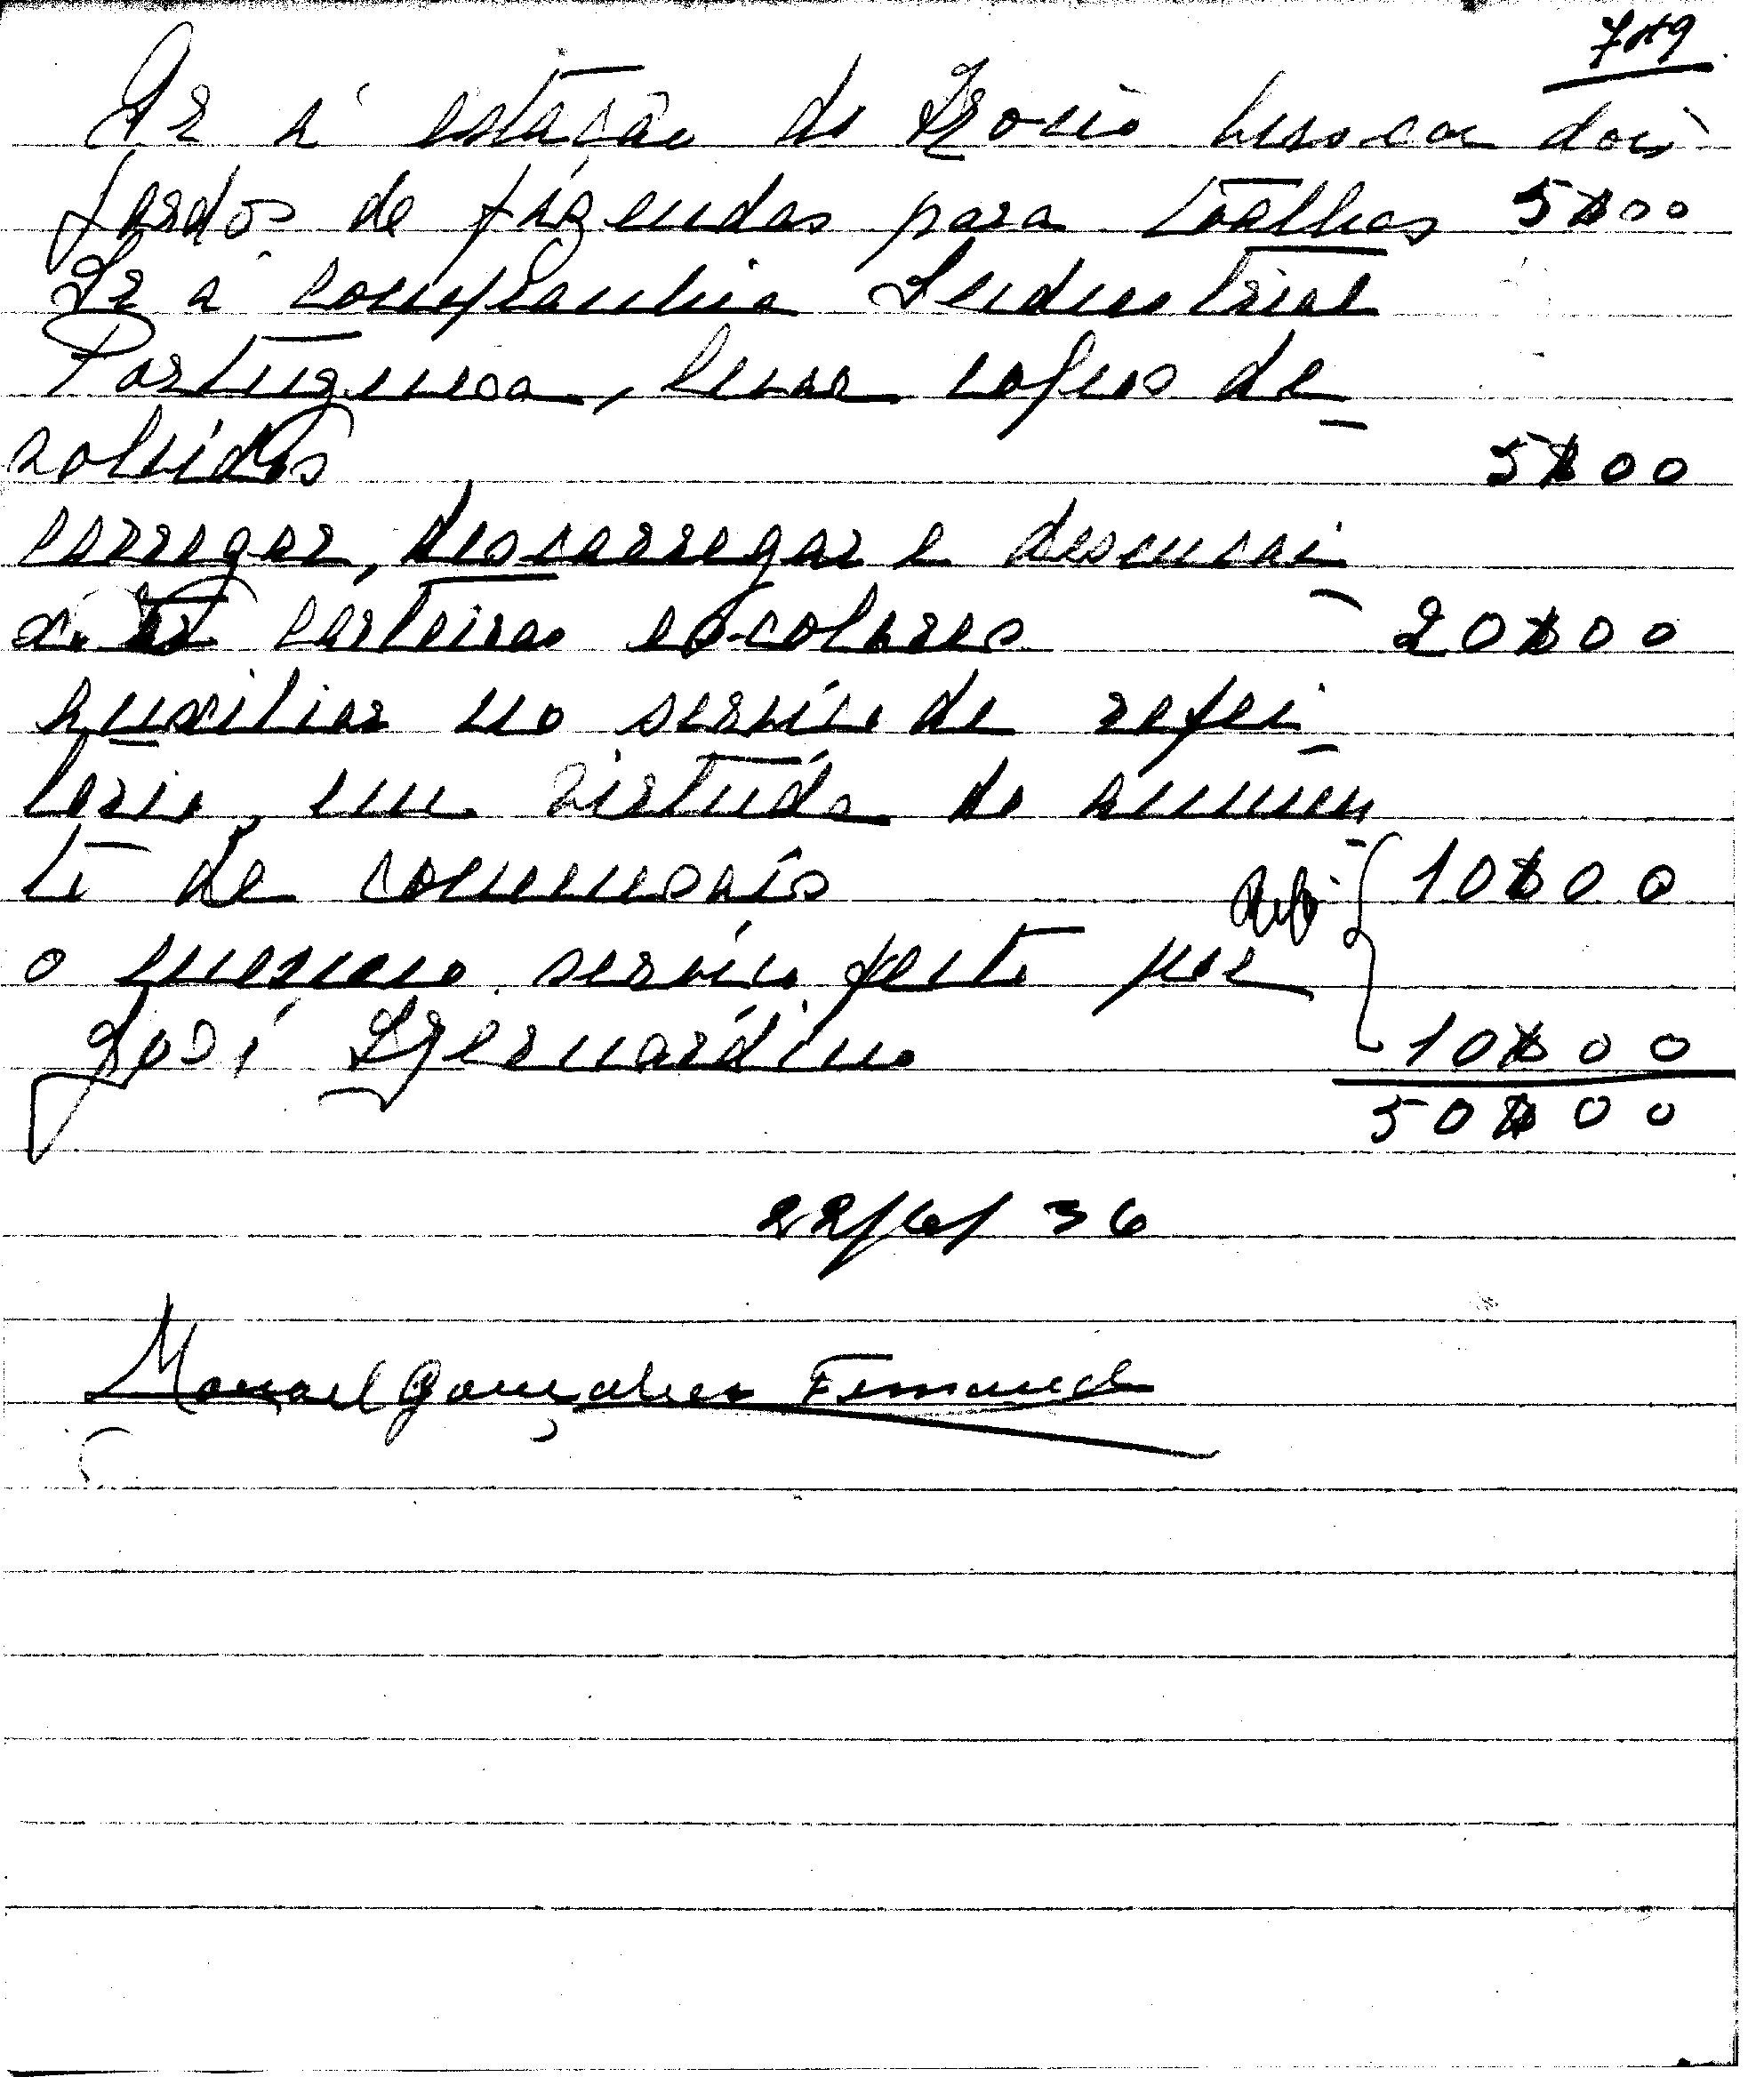 709
Ir á estação do Rocio buscar dois
fardos de fazendas para toalhas 5$00
Ir á companhia Industrial
Portuguesa, levar copos de
volvidos 5$00
carregar, descarregar e desencai
xotar carteiras escolares 20$00
auxiliar no serviço de refei
torio, em virtude do aumen
to de comensais 10$00
o mesmo serviço feito por
José Bernardino 10$00
50$00
22/6/36
Manuel Gonçalves Fernandes